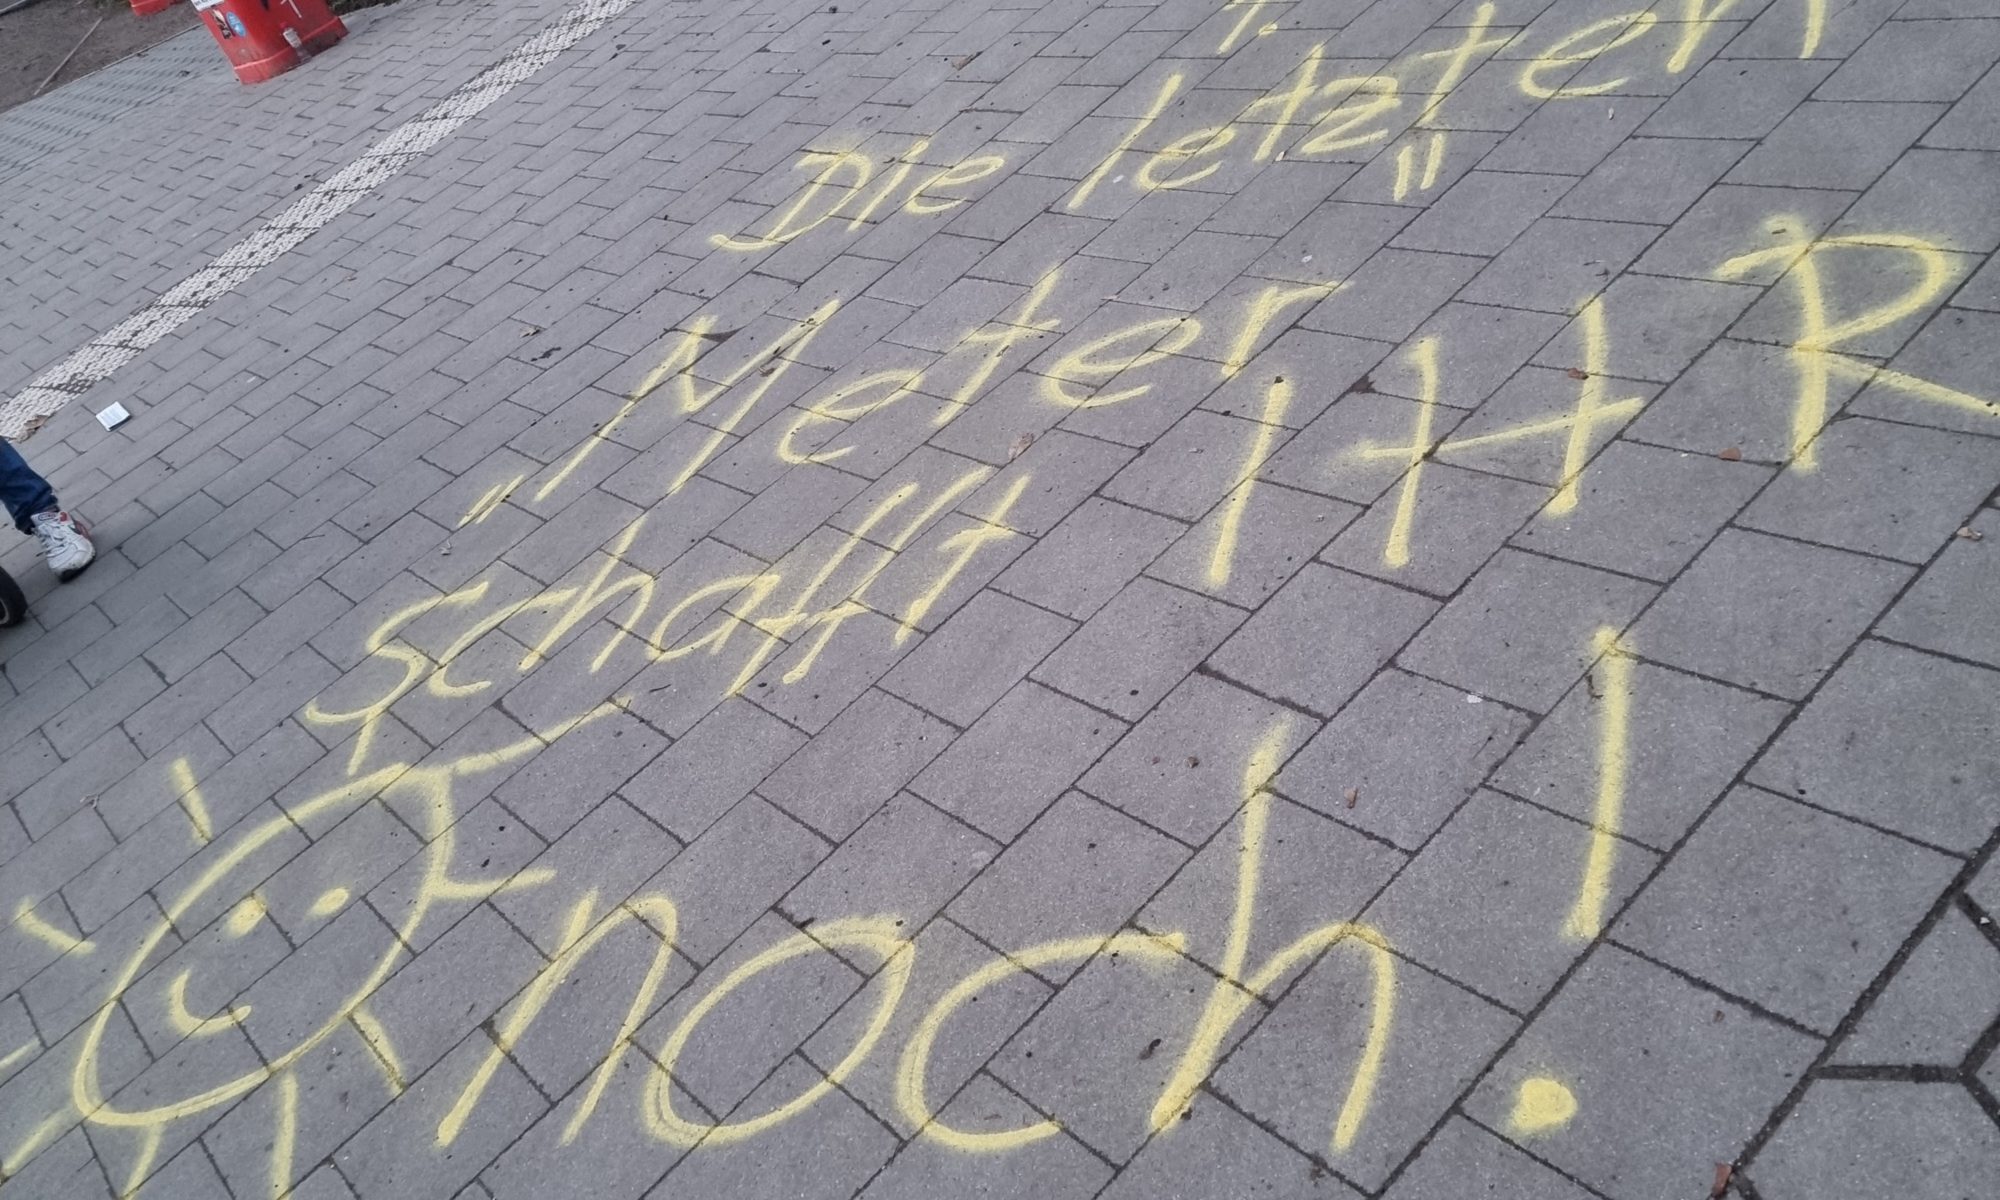 Die letzten
„Meter"
schafft IHR
noch!